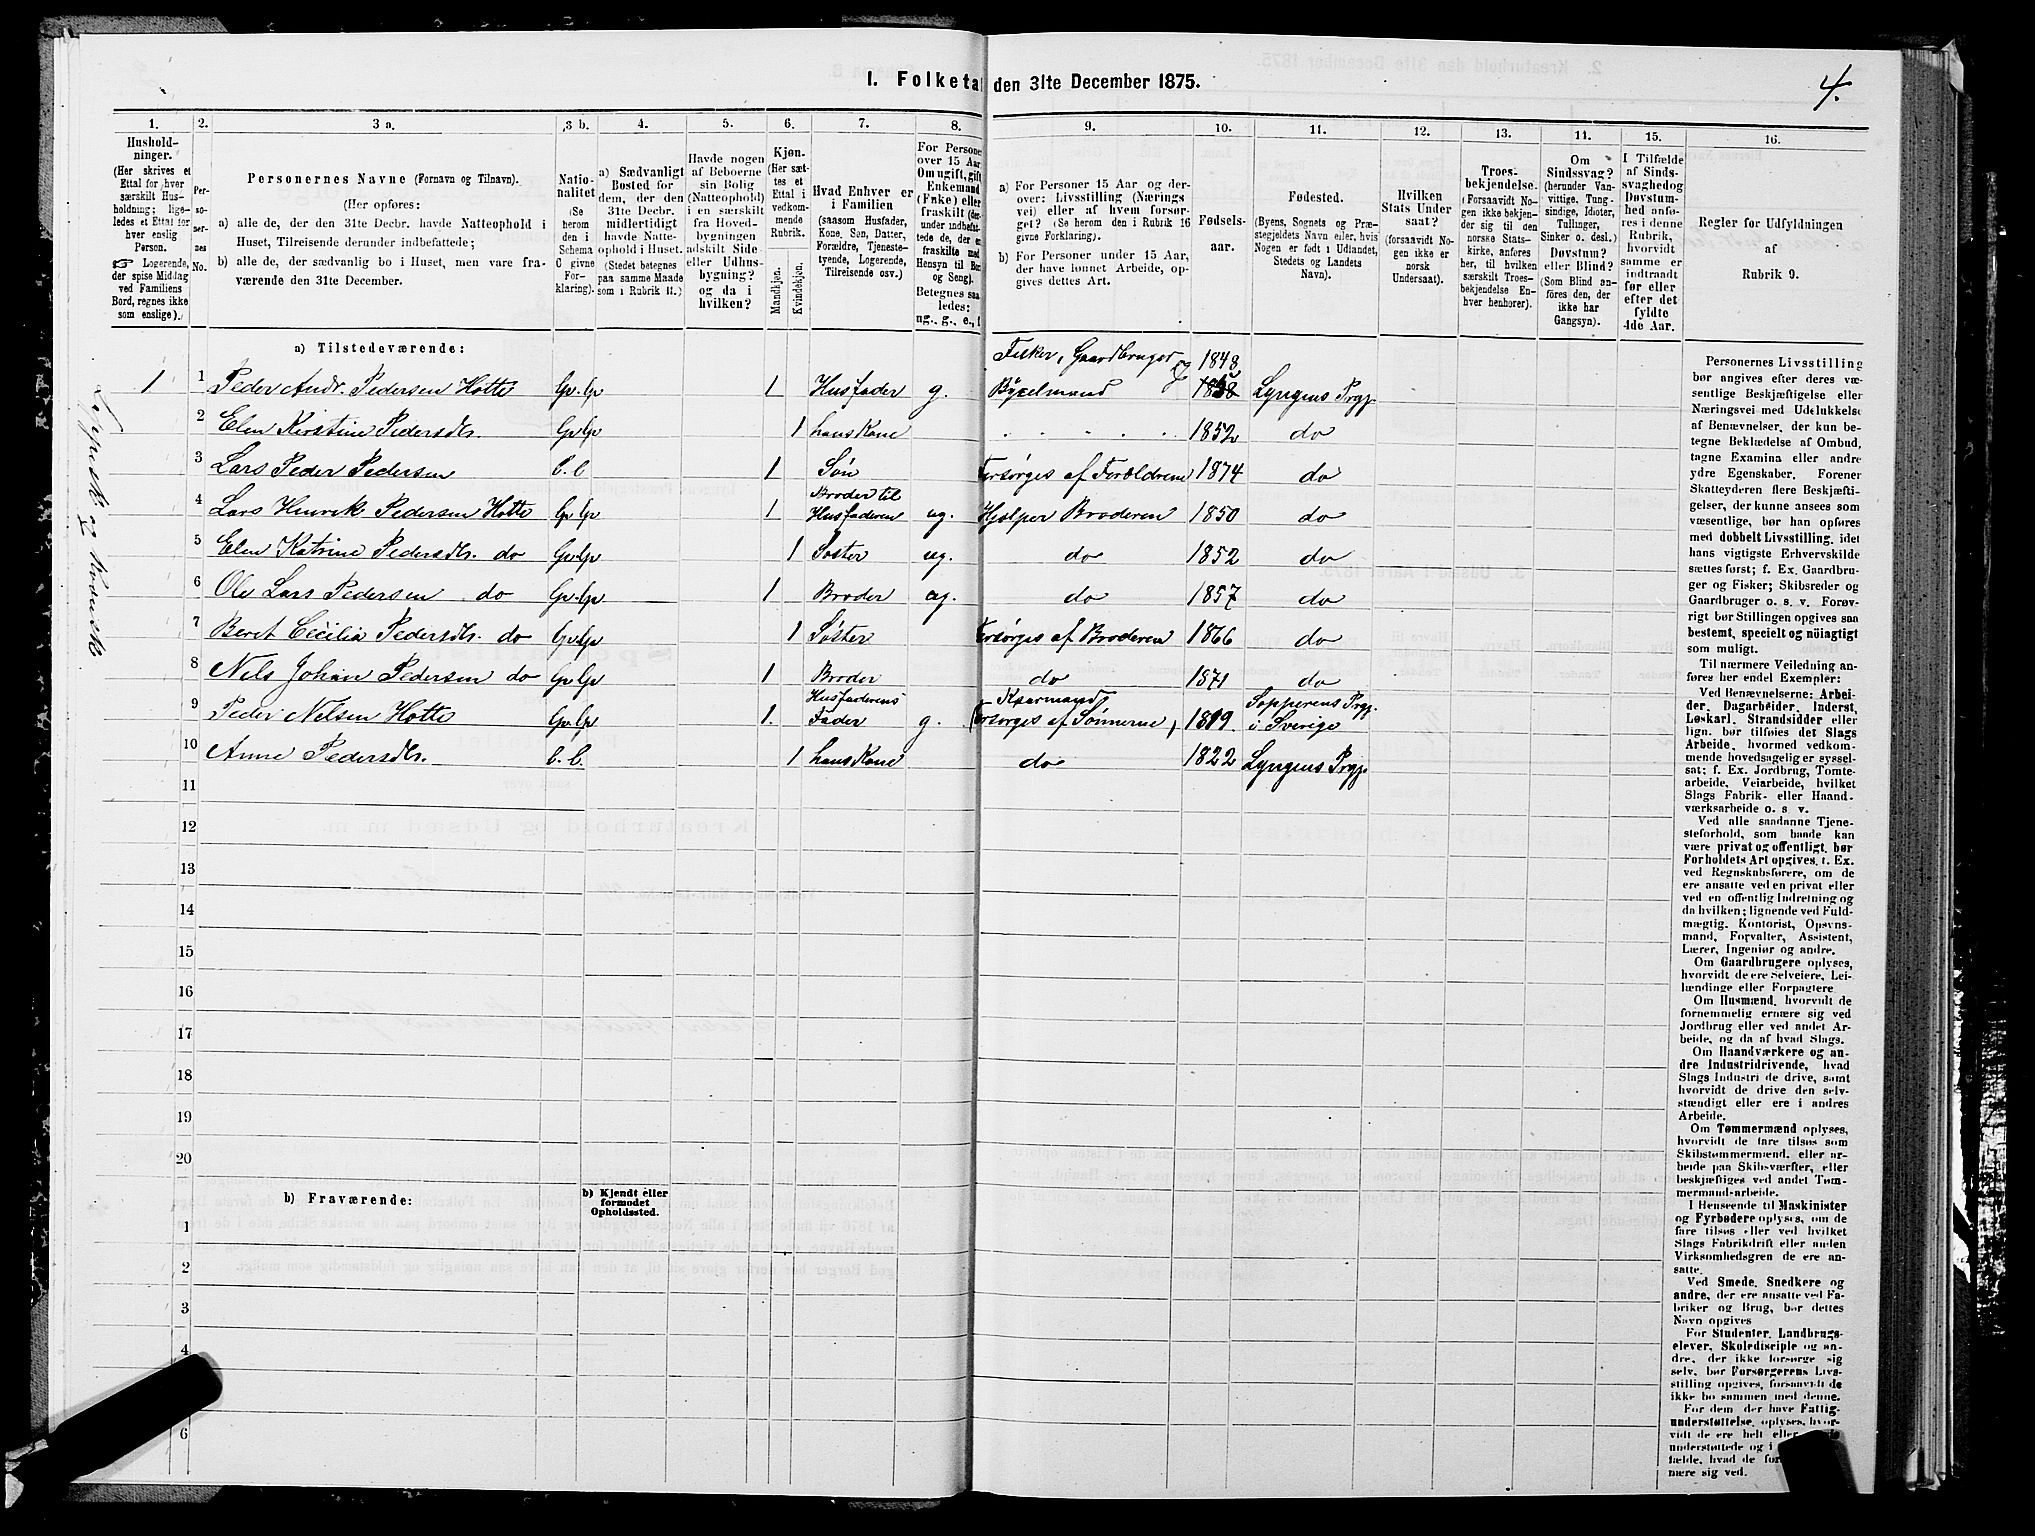 I. Folketal den 31te December 1875.
4.
1.
Hushold-
ninger.
(Her skrives et
Ettal for hver
særskilt Hus-
holdning; lige-
ledes et Ettal for
hver enslig
Person.
☞ Logerende,
der spise Middag
ved Familiens
Bord, regnes ikke
som enslige).
2.
Per-
so-
ner-
nes
No.
3 a.
Personernes Navne (Fornavn og Tilnavn).
(Her opføres:
a) alle de, der den 31te Decbr. havde Natteophold i
Huset, Tilreisende derunder indbefattede;
b) alle de, der sædvanlig bo i Huset, men vare fra-
værende den 31te December.
3 b.
Natio-
nalitet
(Se
herom
den i
Schema
O givne
For-
klaring).
4.
a) Sædvanligt
Bosted for
dem, der den
31te Decbr.
midlertidigt
havde Natte-
ophold i Huset.
(Stedet betegnes
paa samme Maade
som i Rubrik 11.)
5.
Havde nogen
af Beboerne
sin Bolig
(Natteophold)
i en særskilt
fra Hoved-
bygningen
adskilt Side-
eller Udhus-
bygning?
og da i
hvilken?
6.
Kjøn.
(Her sæt-
tes et
Ettal i
vedkom-
mende
Rubrik.
Mandkjøn.
Kvindekjøn.
7.
Hvad Enhver er
i Familien
(saasom Husfader,
Kone, Søn, Datter,
Forældre, Tjeneste-
tyende, Logerende,
Tilreisende osv.)
8.
For Persone
over 15 Aar
Om ugift, gift
Enkemand
(Enke) eller
fraskilt (der-
under indbefat-
tede de, der er
fraskilte med
Hensyn til Bor
og Seng).
Betegnes saa
ledes:
ug., g., e., f
9.
a) For Personer 15 Aar og der-
over: Livsstilling (Nærings
vei) eller af hvem forsør-
get? (Se herom den i Rubrik 16
givne Forklaring).
b) For Personer under 15 Aar,
der have lønnet Arbeide, op-
gives dettes Art.
10.
Fødsels-
aar.
11.
Fødested.
(Byens, Sognets og Præ-
stegjeldets Navn eller, hvis
Nogen er født i Udlandet,
Stedets og Landets
Navn).
12.
Hvilken
Stats Under
saat?
(forsaavidt No-
gen ikke er
norsk
Undersaat).
13.
Troes-
bekjendelse.
(Forsaavidt No-
gen ikke bekjen-
der sig til den
norske Stats-
kirke, anføres
her, til hvilken
særskilt Troes-
bekjendelse En-
hver henhører).
11.
Om
Sindssvag?
(herunder Van-
vittige, Tung-
sindige, Idioter,
Tullinger,
Sinker o. desl.)
Døvstum?
eller Blind?
(Som Blind an-
føres den, der
ikke har
Gangsyn).
15.
I Tilfælde
af Sinds-
svaghed og
Døvstum-
hed anfø-
res i denne
Rubrik,
hvorvidt
samme er
indtraadt
før eller
efter det
fyldte
4de Aar.
16.
Regler for Udfyldningen
af
Rubrik 9.
a) Tilstedeværende:
Fisker, Gaardbruger 1848
1 1 Peder Andr. Pedersen Hotte 1 Husfader g. Byxelmand Lyngens Prgj.
2 Elen Kirstine Pedersdtr. 1 hans Kone 1852 do
3 Lars Peder Pedersen 1 Søn Forsørges af Forældrene 1874 do
Broder til
4 Lars Henrik Pedersen Hotte 1 Husfaderen ug. Hjælper Broderen 1850 do
5 Elen Katrine Pedersdtr. do 1 Søster ug. do 1852 do
6 Ole Lars Pedersen do 1 Broder ug. do 1857 do
7 Beret Cecilia Pedersdtr. do 1 Søster Forsørges af Broderen 1866 do
8 Nels Johan Pedersen do 1 Broder do 1871 do
Husfaderens Kaarmand,
9 Peder Nelsen Hotte 1. Fader g. (Forsørges af Sønnerne) 1819. i Sverige
10 Anne Pedersdtr. 1 hans Kone do 1822 Lyngens Prgj.
11
12
13
14
15
16
17
18
19
20
b) Fraværende:
b) Kjendt eller
formodet
Opholdssted.
1
2
3
4
6
Personernes Livsstilling
bør angives efter deres væ-
sentlige Beskjæftigelse eller
Næringsvei med Udelukkelse
af Benævnelser, der kun be-
tegne Beklædelse af Ombud,
tagne Examina eller andre
ydre Egenskaber. Forener
Skatteyderen flere Beskjæfti-
gelser, der kunne ansees som
væsentlige, bør han opføres
med dobbelt Livsstilling, idet
hans vigtigste Erhvervskilde
sættes først; f. Ex. Gaardbru-
ger og Fisker; Skibsreder og
Gaardbruger o. s. v. Forøv-
rigt bør Stillingen opgives saa
bestemt, specielt og nöiagtigt
som muligt.
Til nærmere Veiledning an-
føres her endel Exempler:
Ved Benævnelserne: Arbei-
der, Dagarbeider, Inderst,
Løskarl, Strandsidder eller
lign. bør tilføies det Slags
Arbeide, hvormed vedkom-
mende hovedsagelig er syssel-
sat; f. Ex. Jordbrug, Tomte-
arbeide, Veiarbeide, hvilket
Slags Fabrik- eller Haand-
værksarbeide o. s. v.
Ved alle saadanne Tjene-
steforhold, som baade kan
være privat og offentligt, bør
Forholdets Art opgives, t. Ex.
ved Regnskabsførere, om de
ere ansatte ved en privat eller
ved en offentlig Indretning og
da hvilken; lignende ved Fuld-
mægtig, Kontorist, Opsyns-
mand, Forvalter, Assistent,
Lærer, Ingeniør og andre.
Om Gaardbrugere oplyses,
hvorvidt de ere Selveiere, Lei-
lændinge eller Forpagtere.
Om Husmænd, hvorvidt de
fornemmelig ernære sig ved
Jordbrug eller ved andet Ar-
beide, og da af hvad Slags.
Om Haandværkere og an-
dre Industridrivende, hvad
Slags Industri de drive, samt
hvorvidt de drive den selv-
stændigt eller ere i andres
Arbeide.
Om Tømmermænd oplyses,
hvorvidt de fare tilsøs som
Skibstømmermænd, eller ar-
beide paa Skibsværfter, eller
beskjæftiges ved andet Tøm-
mermand-arbeide.
I Henseende til Maskinister
og Fyrbødere oplyses, om de
fare tilsøs eller ved hvilket
Slags Fabrikdrift eller anden
Virksomhedsgren de ere an-
satte.
Ved Smede, Snedkere og
andre, der ere ansatte ved Fa-
briker og Brug, bør dettes
Navn opgives
For Studenter, Landbrugs-
elever, Skoledisciple og an-
dre, der ikke forsørge sig
selv, bør Forsørgerens Livs-
stilling opgives, forsaavidt de
ikke bo sammen med denne.
For dem, der have Fattig-
understøttelse, oplyses, hvor-
vidt de ere helt eller
understøttede og i
fælde, hvad de for
nære sig ved.